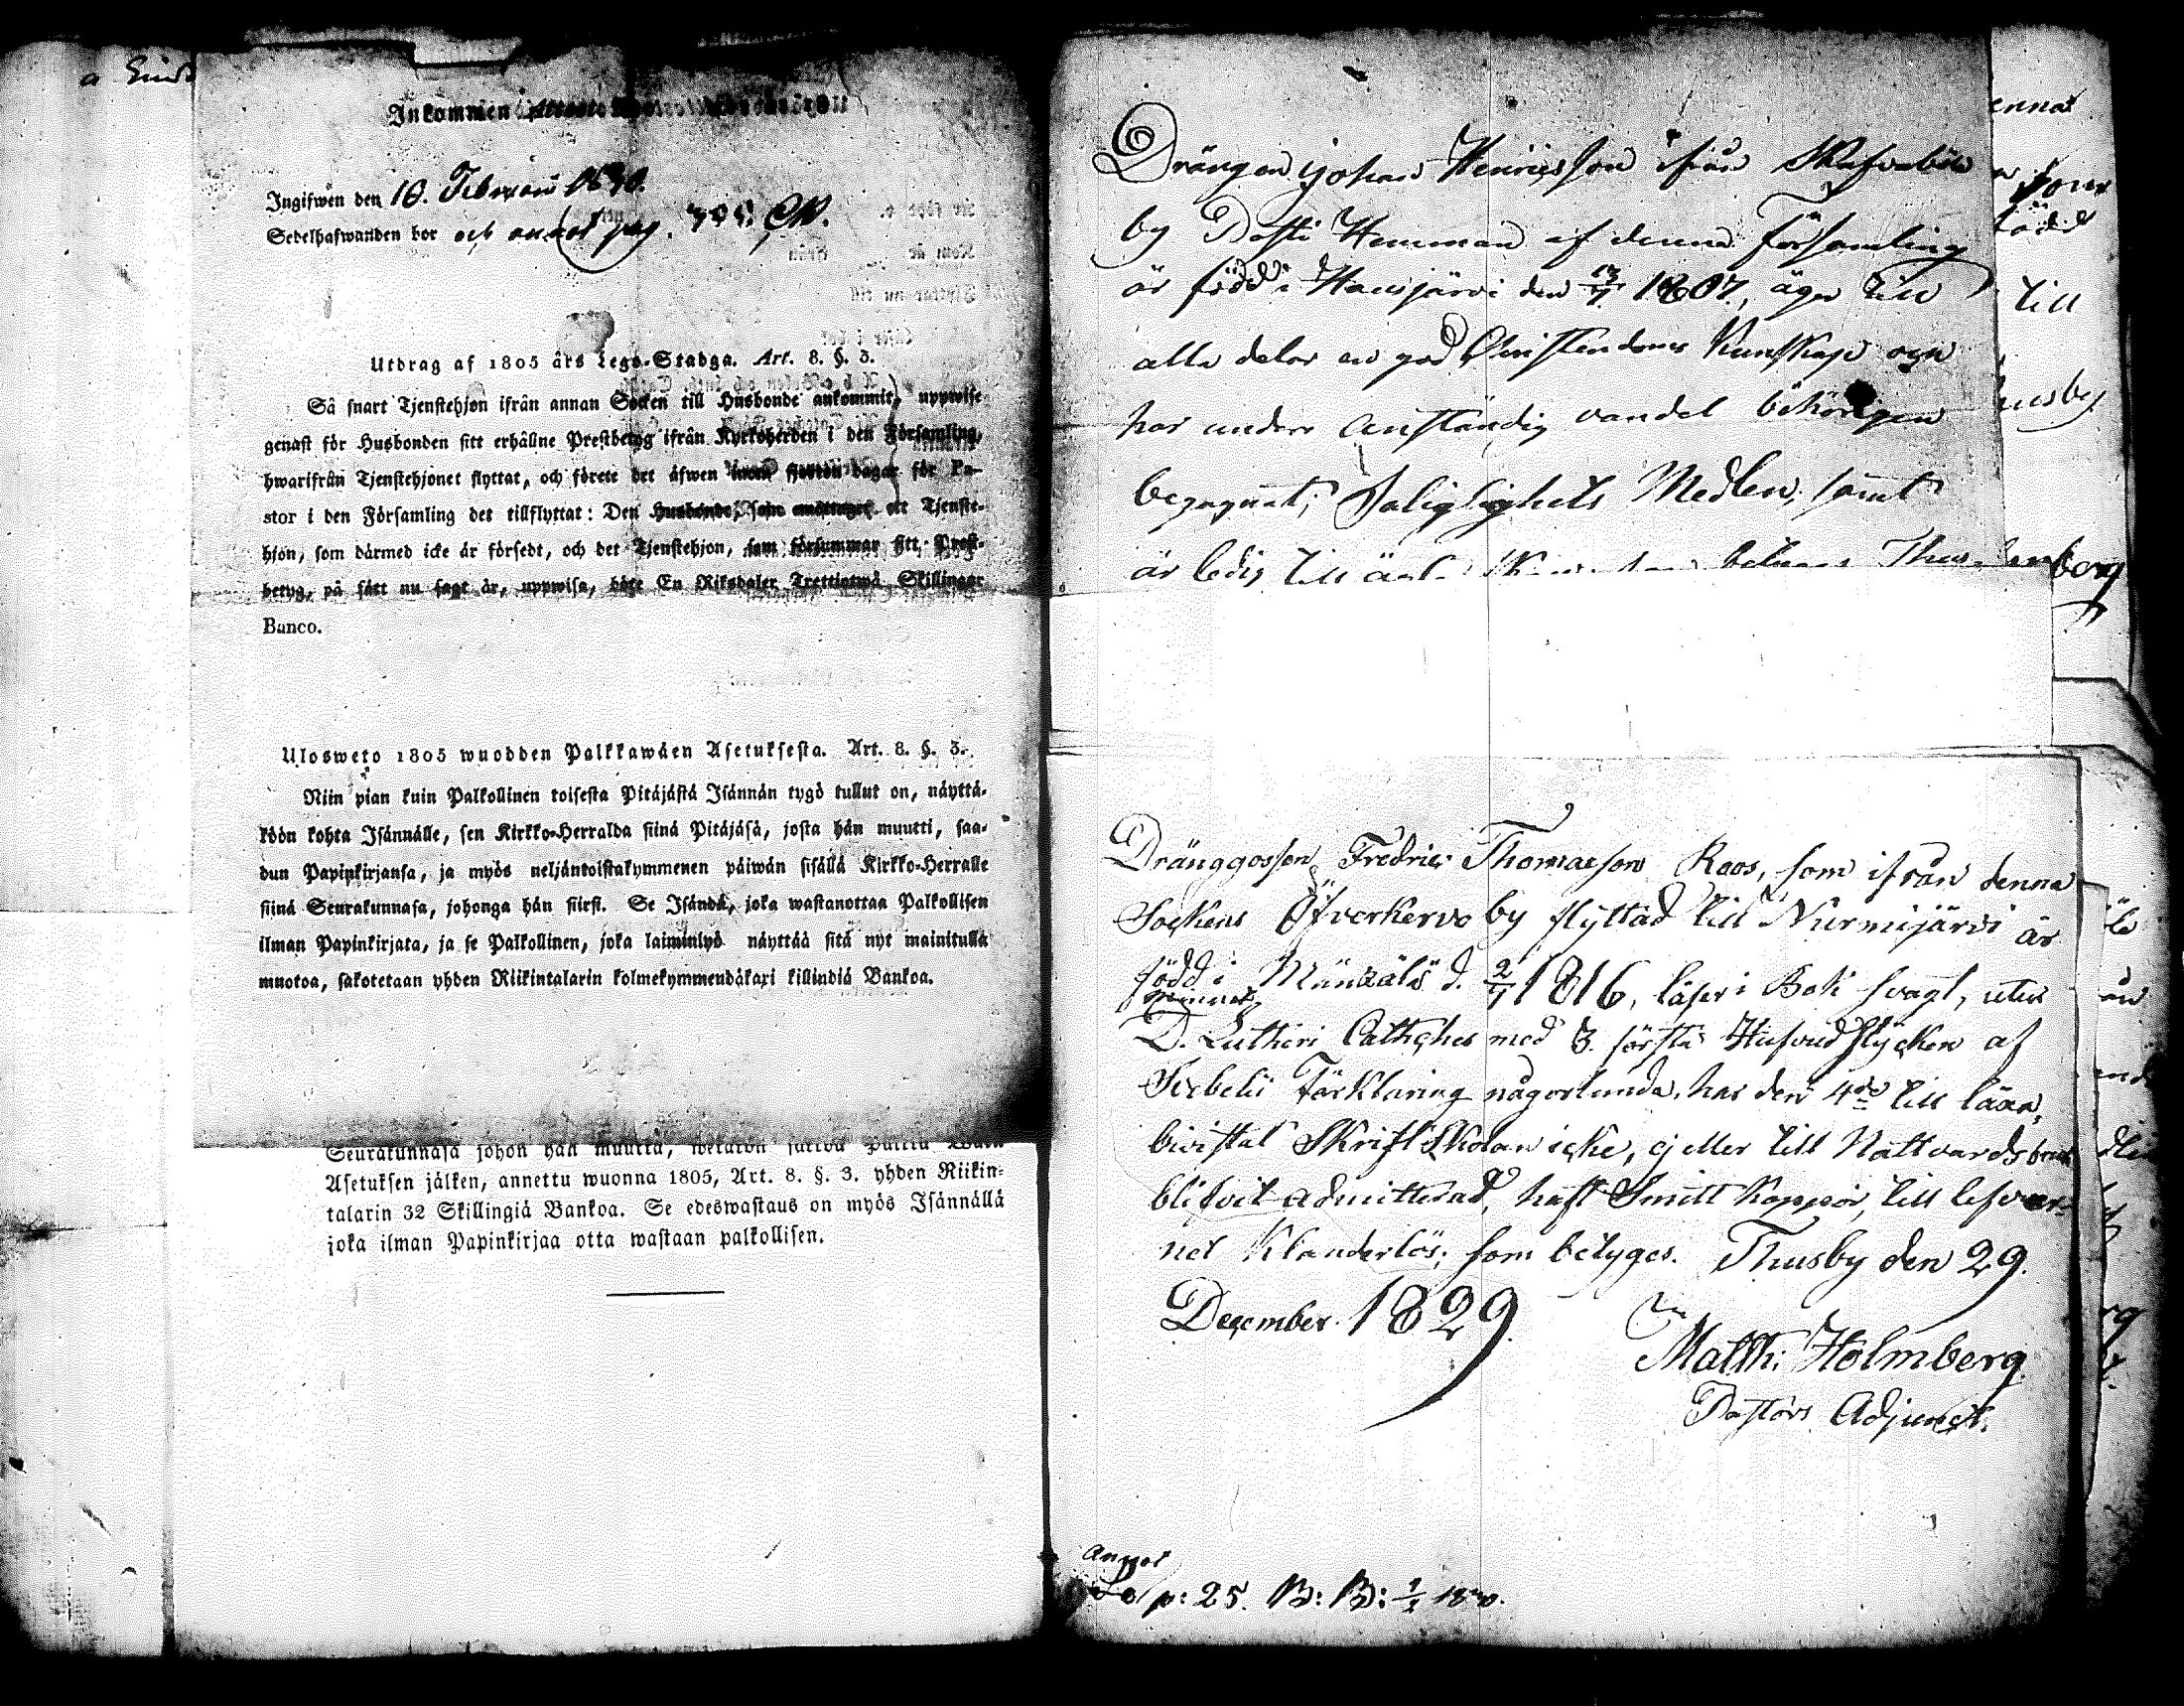 Inkommen
Ingifwen den 18. Februarii 1830.
Sedelhafwanden bor och annot pag. 795. CW.
Utdrag af 1805 års Lego-Stadga. Art. 8. §. 3.
Så snart Tjenstehjon ifrån annan Socken till Husbonde ankommit, uppwise
genast för Husbonden sitt erhållne Prestbetyg ifrån Kyrkoherden i den Församling,
hwarifrån Tjenstehjonet flyttat, och förete det äfwen inom fjorton dagar för Pa-
stor i den Församling det tillflyttat: Den Husbonde, som emottager ett Tjenste-
hjon, som därmed icke är försedt, och det Tjenstehjon, som försummar sitt Prest-
betyg, på sätt nu sagt är, uppwisa, böte En Riksdaler Trettiotwå Skillingar
Banco.
Ulosweto 1805 wuodden Palkkawäen Asetuksesta. Art. 8. §. 3.
Niin pian kuin Palkollinen toisesta Pitäjästä Isännän tygö tullut on, näyttä-
köön kohta Isännälle, sen Kirkko-Herralda siinä Pitäjäsä, josta hän muutti, saa-
dun Papinkirjansa, ja myös neljäntoistakymmenen päiwän sisällä Kirkko-Herralle
siinä Seurakunnasa, johonga hän siirsi. Se Isändä, joka wastanottaa Palkollisen
ilman Papinkirjata, ja se Palkollinen, joka laiminlyö näyttää sitä nyt mainitulla
muotoa, sakotetaan yhden Riikintalarin kolmekymmendäkaxi killindiä Bankoa.
Seurakunnasa johon hän muutta,
Asetuksen jälken, annettu wuonna 1805, Art. 8. §. 3. yhden Riikin-
talarin 32 Skillingiä Bankoa. Se edeswastaus on myös Isännällä
joka ilman Papinkirjaa otta wastaan palkollisen.
Drängen Johan Henricsson ifrån Skafvaböle
by Hemman af denna Församling
är född i Hausjärvi den 13/7 1807, äger till
alla delar en god Christendoms Kunskap och
har under anständig vandel behörigen
begagnat Salighets Medlen, samt
är ledig till
Dränggossen Fredric Thomasson Roos, som ifrån denna
Sockens Öfverkervo by flyttad till Nurmijärvi är
född i Mänzälä d. 2/7 1816, läser i Bok svagt, utur
minnet
D. Lutheri Cathches med 3. första Hufvudstycken af
Svebelii Förklaring någorlunda, har den 4de till lära,
bivistat Skriftskolan icke, ej eller till Nattvardsbruk
blifvit admitterad, haft Smitt Koppor, till lefver-
net Klanderlös; som betyges. Thusby den 29.
December 1829.
Matth: Holmberg
Pastors Adjunct.
annot
p: 25. B: B: 1/1 1830.
ennat
till
usby
berg